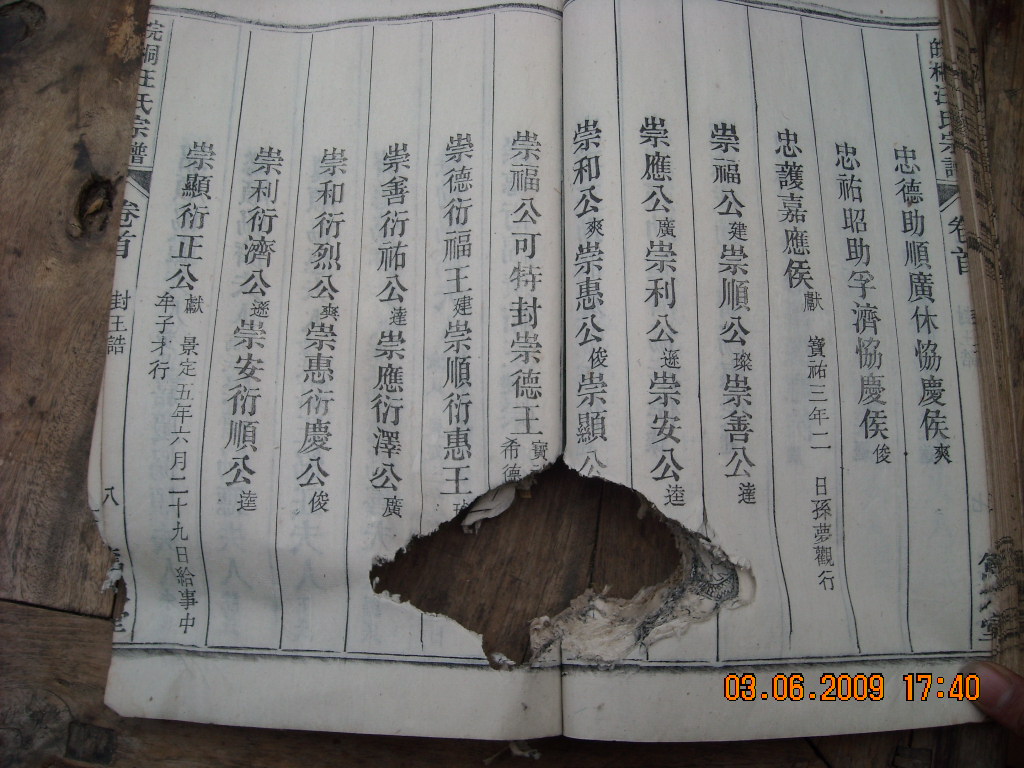 皖桐汪氏宗譜 卷首
忠德助順廣休恊慶侯爽
忠祐昭助孚濟恊慶侯俊
忠護嘉應侯獻 寶祐三年二 日孫夢觀行
崇福公建崇順公璨崇善公達
崇應公廣崇利公遜崇安公逵
崇和公爽崇惠公俊崇顯公
崇福公可特封崇德王 寶 希德
崇德衍福王建崇順衍惠王
崇善衍祐公達崇應衍澤公廣
崇和衍烈公爽崇惠衍慶公俊
崇利衍濟公遜崇安衍順公逵
崇顯衍正公獻 景定五年六月二十九日給事中牟子才行
皖桐汪氏宗譜 卷首 封王誥 八
03.06.2009 17:40